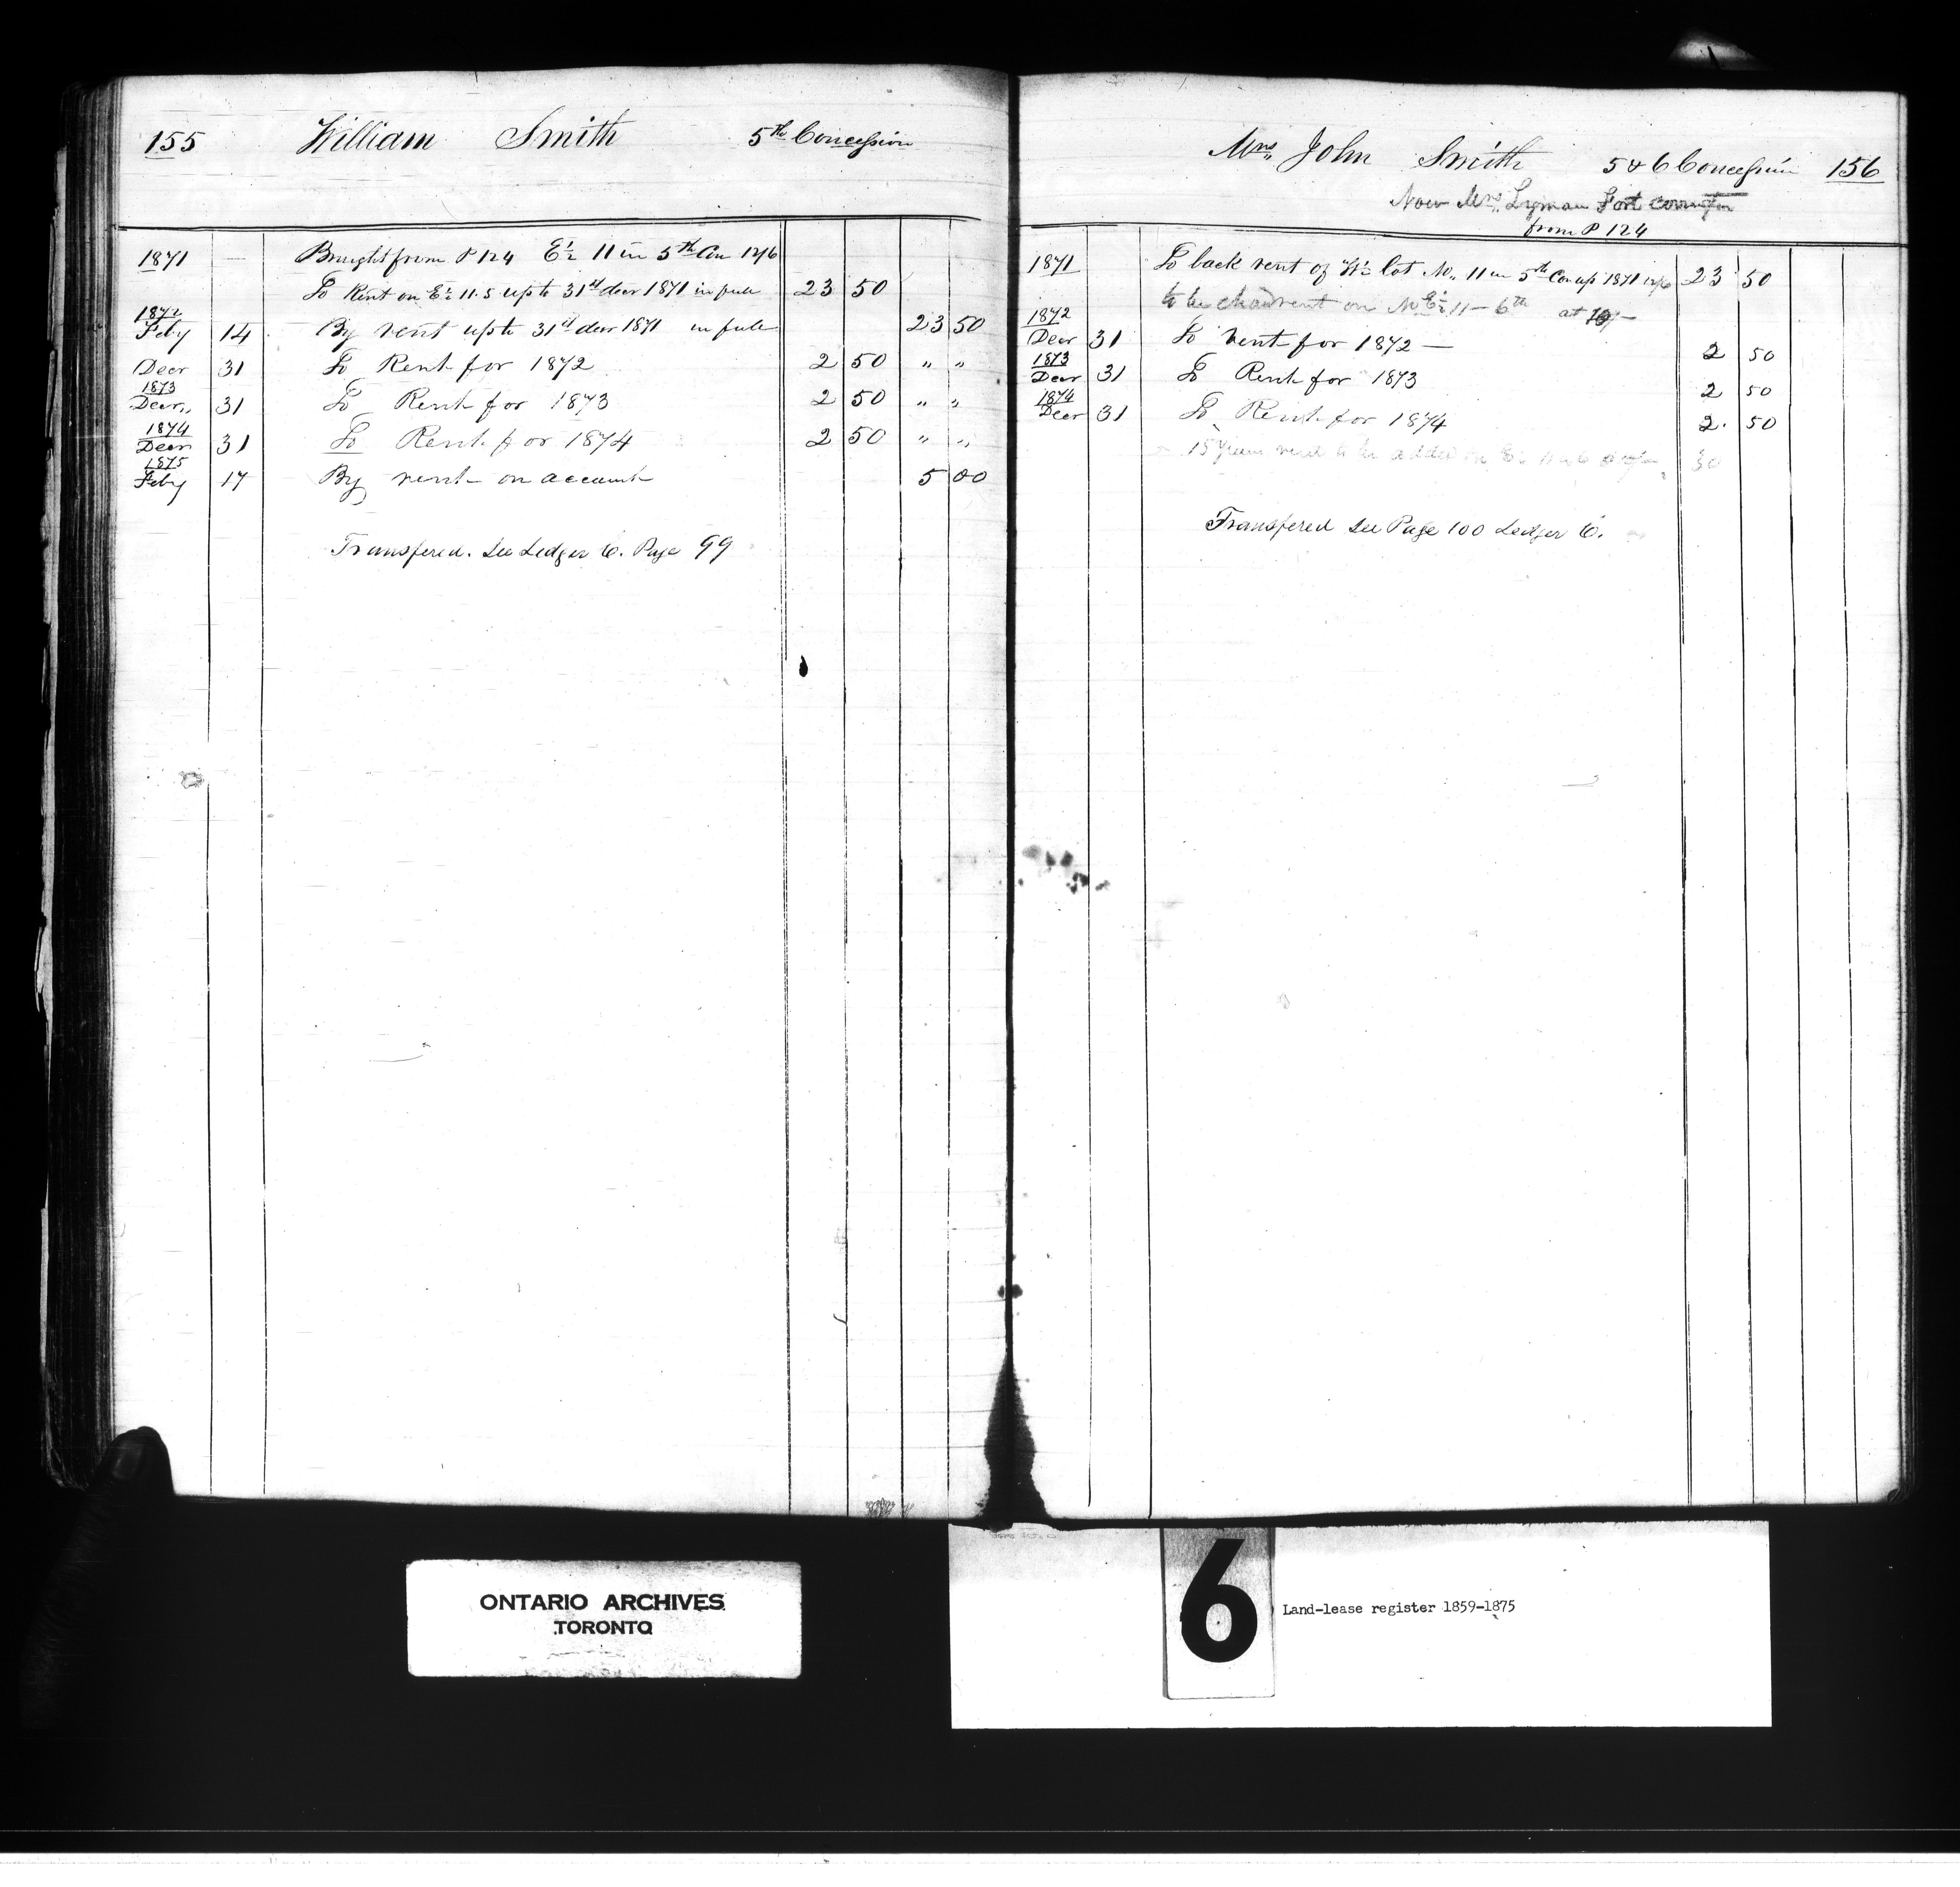 155 William Smith 5th Concession
1871 — Brought from P 124 E½ 11 in 5th Con 12/6
To Rent on E½ 11.5 up to 31st decr 1871 in full 23 50
1872
Feby 14 By rent up to 31st decr 1871 in full 23 50
Decr 31 To Rent for 1872 2 50 " "
1873
Decr,, 31 To Rent for 1873 2 50 " "
1874
Decr 31 To Rent for 1874 2 50 " "
1875
Feby 17 By rent on account 5 00
Transfered. See Ledger C. Page 99
Mrs,, John Smith 5 & 6 Concession 156
Now Mrs. Lyman Fort
from P 124
1871 To back rent of W½ lot No,, 11 in 5th Con up 1871 12/6 23 50
to be rent on E½ 11 – 6th at
1872
Decr 31 To rent for 1872 — 2 50
1873
Decr 31 To Rent for 1873 2 50
1874
Decr 31 To Rent for 1874 2. 50
15 years rent to be added on E½ 30
Transfered See Page 100 Ledger C.
ONTARIO ARCHIVES
TORONTO
6
Land-lease register 1859-1875